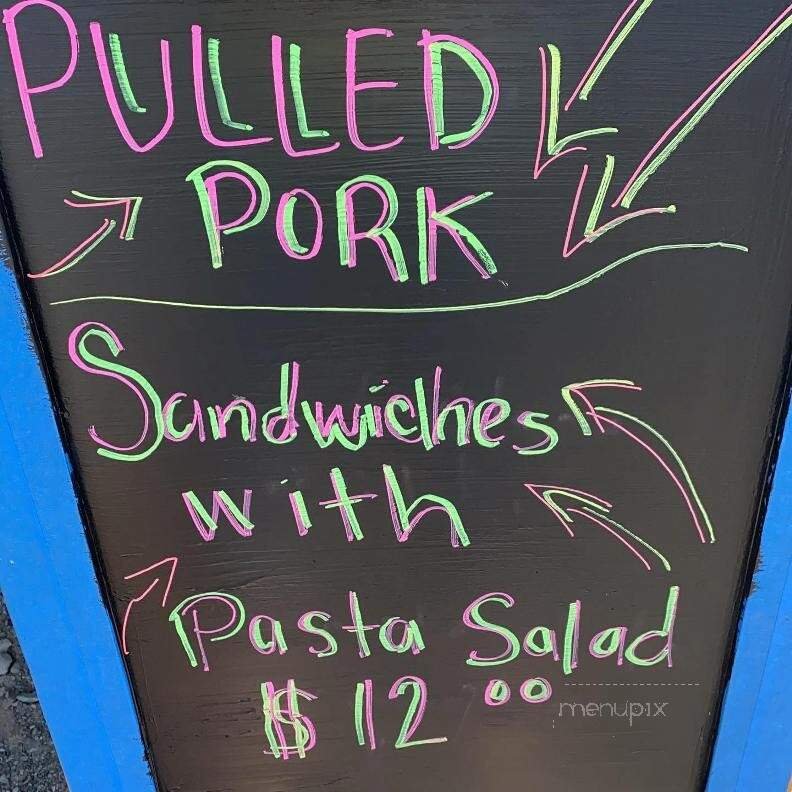 PULLED
PORK
Sandwiches
with
Pasta Salad
$12 00
menupix